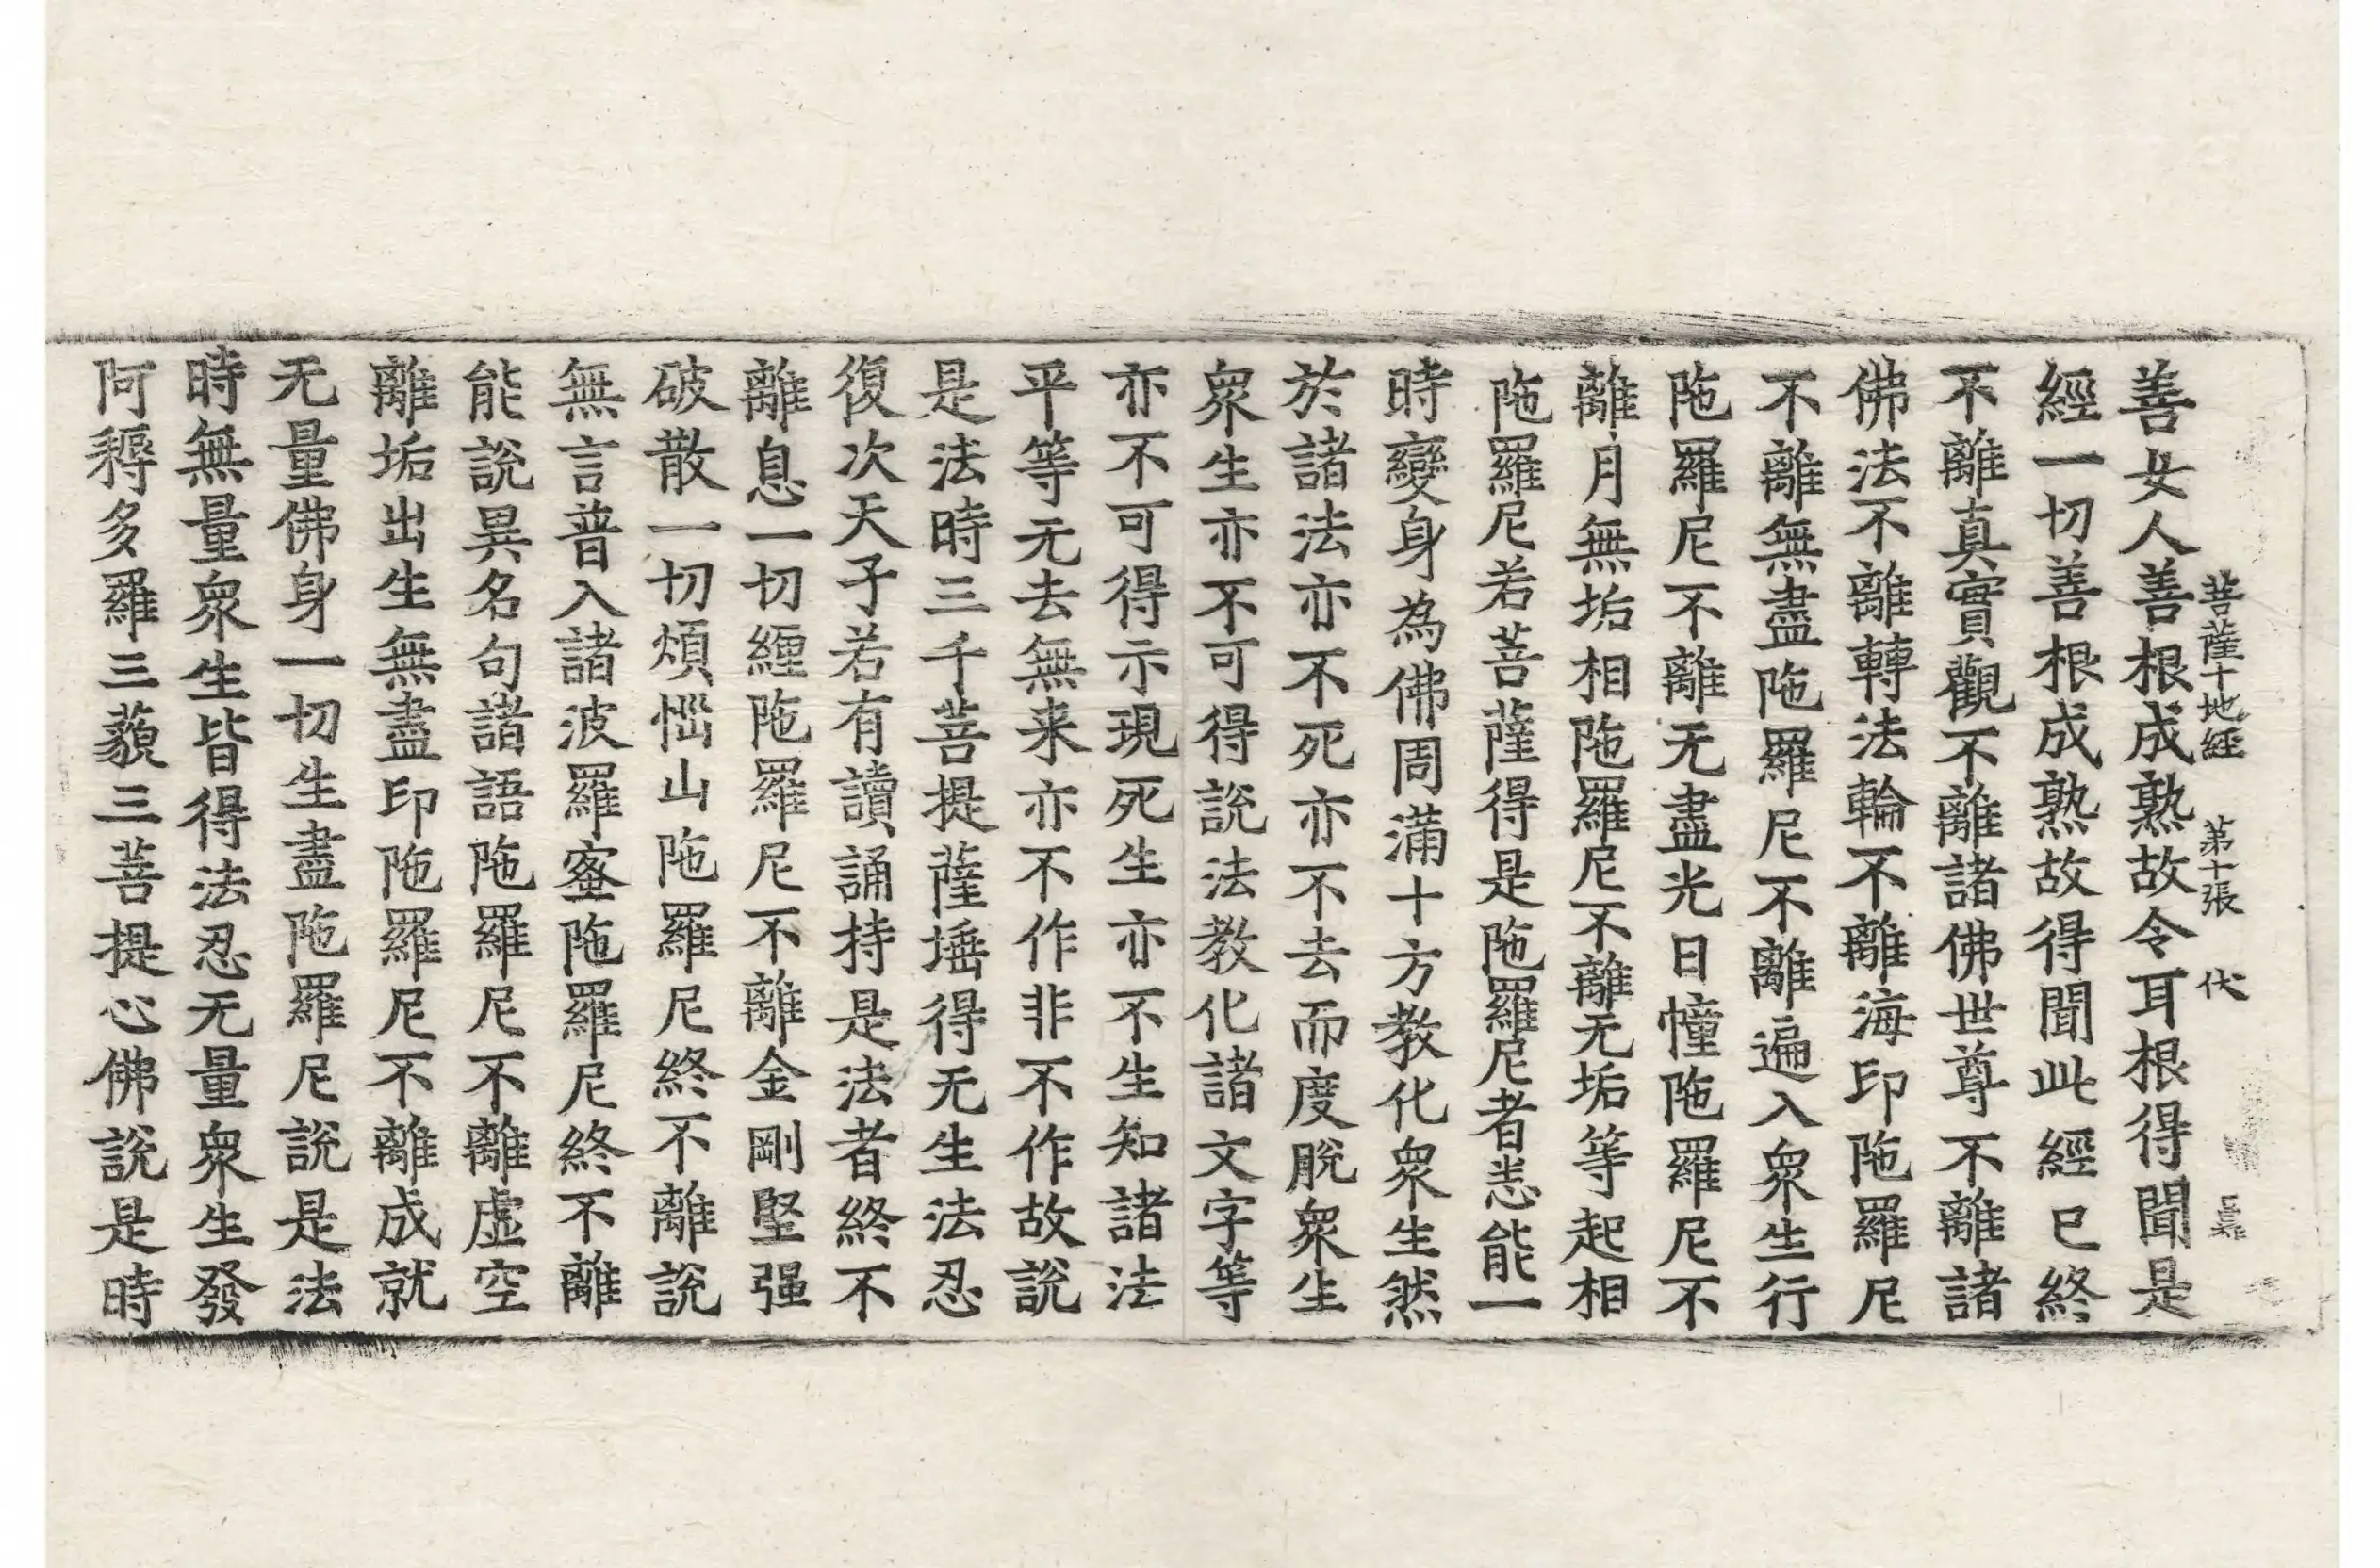 菩薩十地經 第十張 代
善女人善根成熟故令耳根得聞是
經一切善根成熟故得聞此經已終
不離真實觀不離諸佛世尊不離諸
佛法不離轉法輪不離海印陁羅尼
不離無盡陁羅尼不離遍入衆生行
陁羅尼不離无盡光日幢陁羅尼不
離月無垢相陁羅尼不離无垢等起相
陁羅尼若菩薩得是陁羅尼者悉能一
時變身為佛周滿十方教化衆生然
於諸法亦不死亦不去而度脫衆生
衆生亦不可得說法教化諸文字等
亦不可得示現死生亦不生知諸法
平等无去無来亦不作非不作故說
是法時三千菩提薩埵得无生法忍
復次天子若有讀誦持是法者終不
離息一切纏陁羅尼不離金剛堅强
破散一切煩惱山陁羅尼終不離說
無言普入諸波羅蜜陁羅尼終不離
能說異名句諸語陁羅尼不離虛空
離垢出生無盡印陁羅尼不離成就
无量佛身一切生盡陁羅尼說是法
時無量衆生皆得法忍无量衆生發
阿耨多羅三藐三菩提心佛說是時